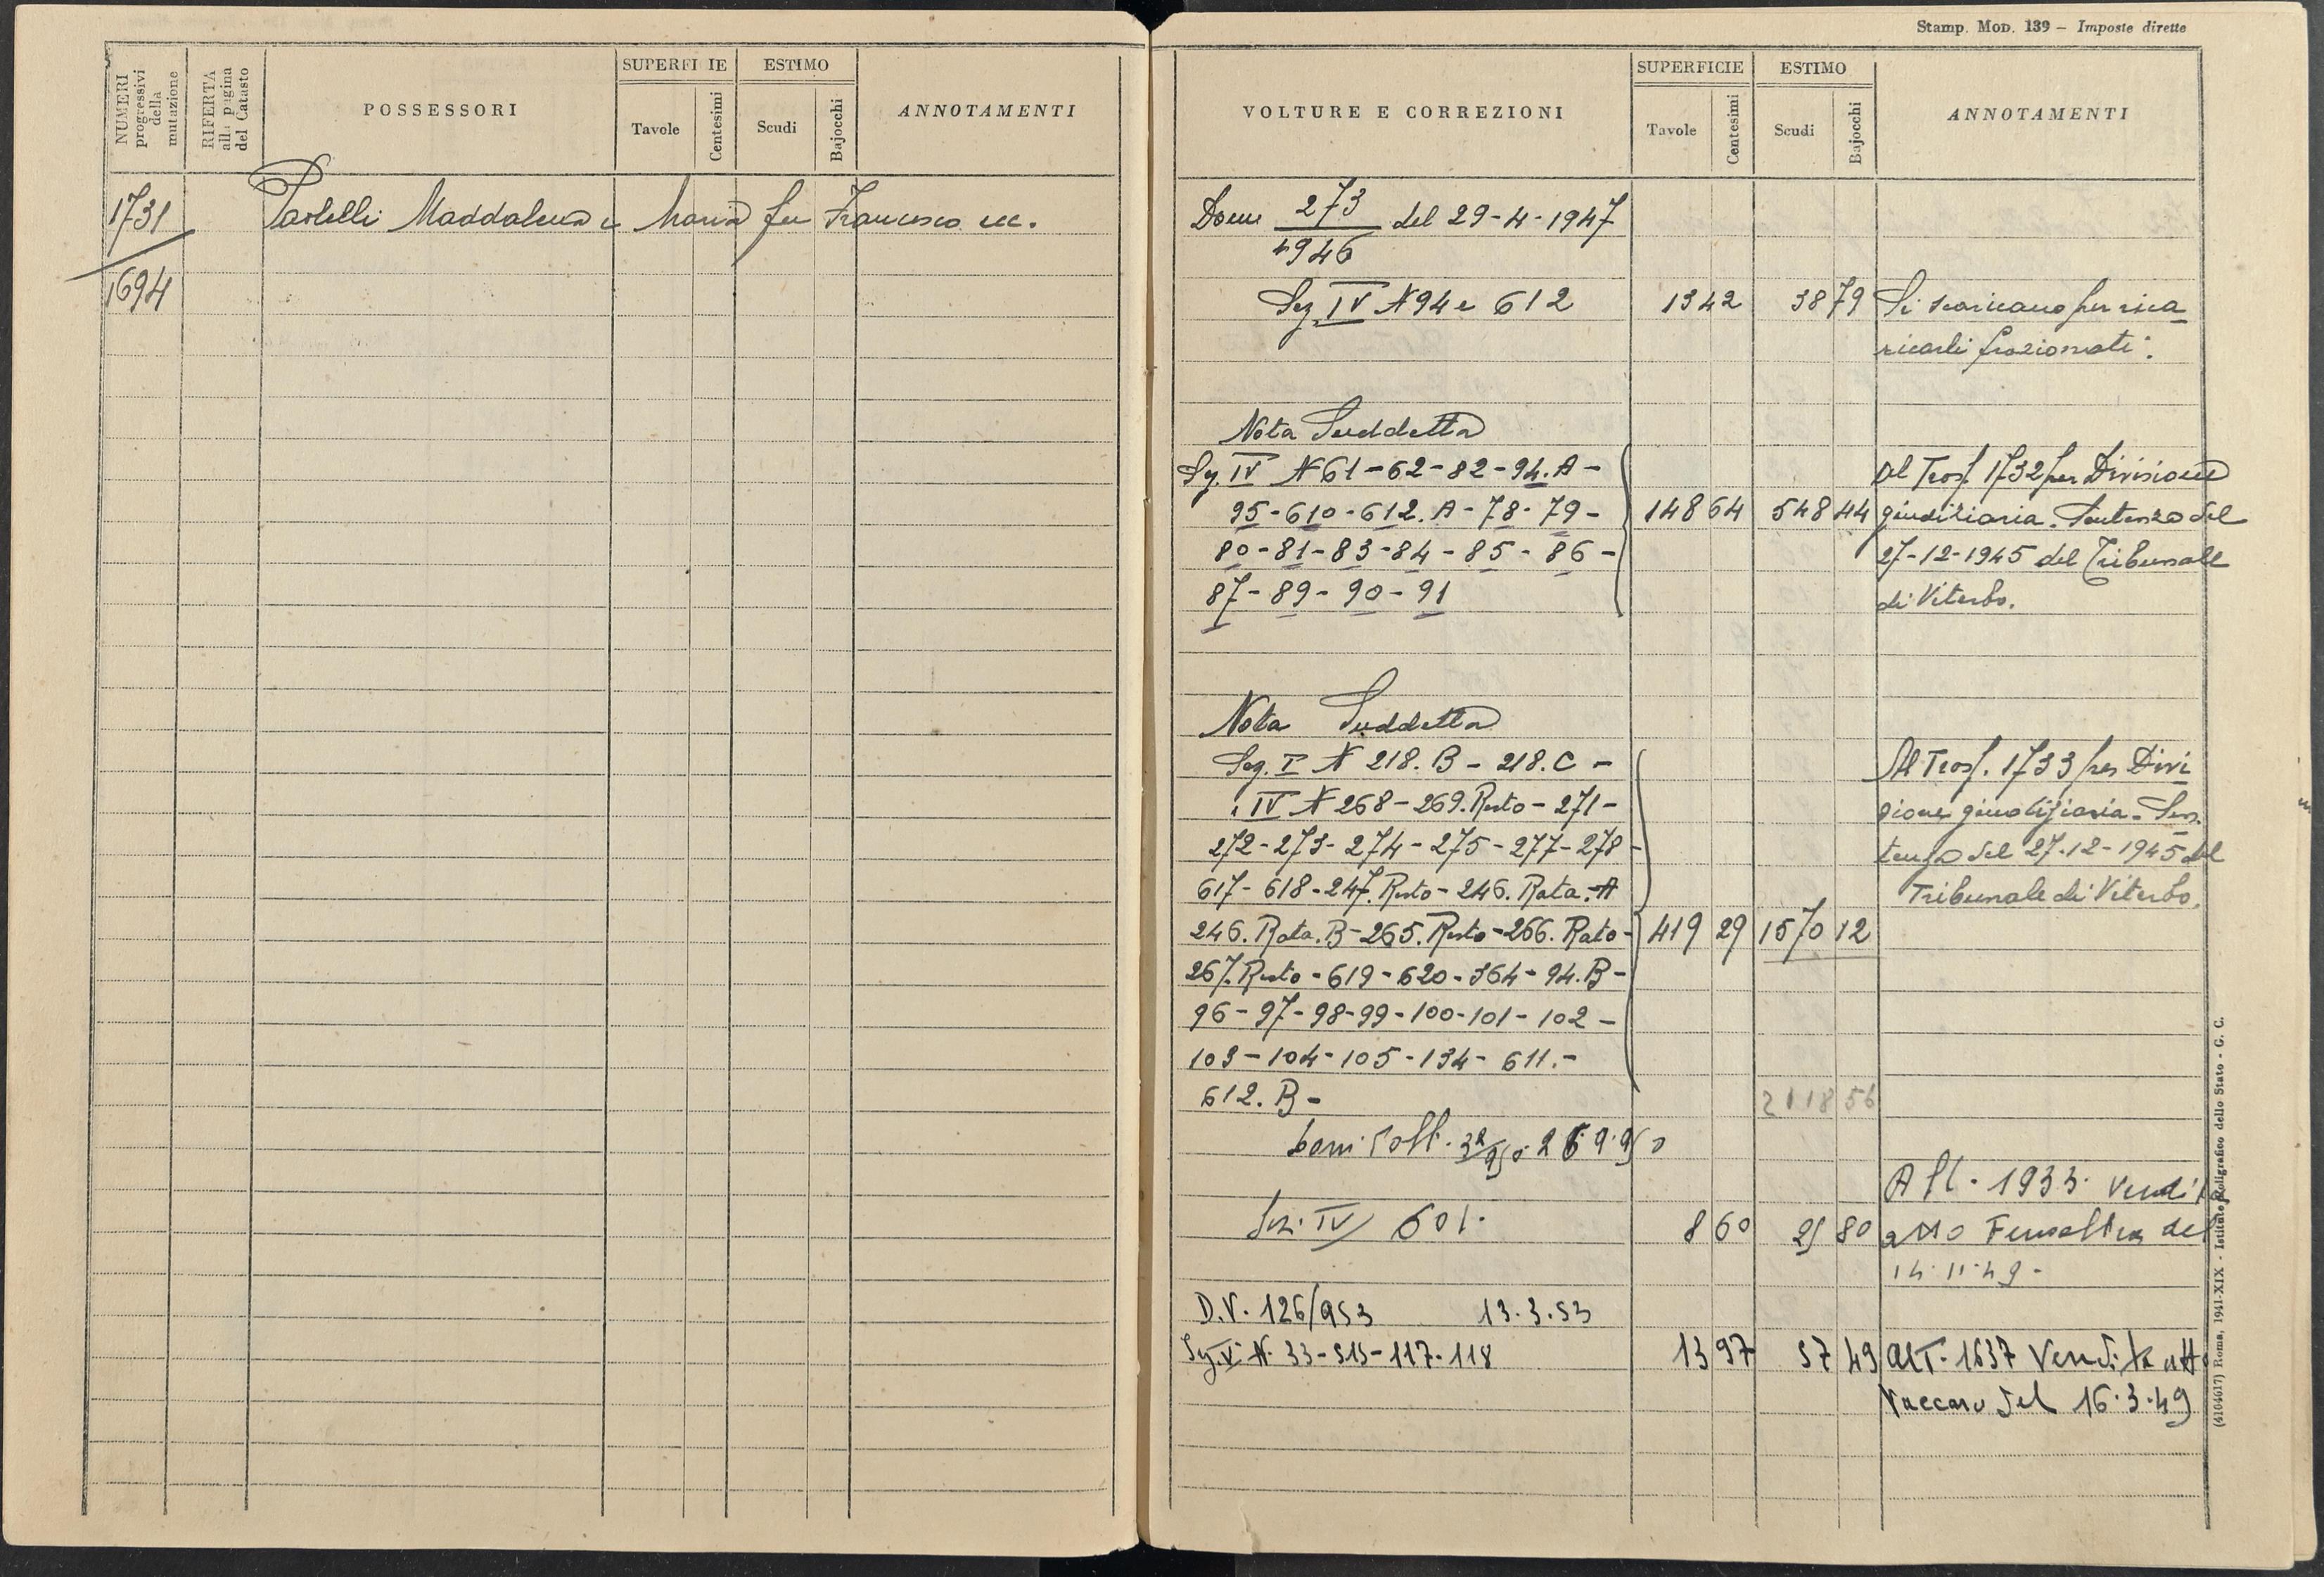 NUMERI progressivi della mutazione
RIFERTA alla pagina del Catasto
POSSESSORI
SUPERFI IE
Tavole
Centesimi
ESTIMO
Scudi
Bajocchi
ANNOTAMENTI
1731
1694
Paolelli Maddalena e Maria fu Francesco ecc.
Stamp. Mod. 139 — Imposte dirette
VOLTURE E CORREZIONI
SUPERFICIE
Tavole
Centesimi
ESTIMO
Scudi
Bajocchi
ANNOTAMENTI
273
Dom 1946 del 29-4-1947
Sez IV N 94 e 612 13 42 38 79 Si scaricano per rica
ricarli frazionati.
Nota Suddetta
Sez. IV N 61-62-82-94.A- Al Trasf. 1732 per Divisione
95-610-612.A-78-79- 148 64 548 44 giudiziaria. Sentenza del
80-81-83-84-85-86- 27-12-1945 del Tribunale
87-89-90-91 di Viterbo.
Nota Suddetta
Sez. I N 218.B-218.C- Al Trasf. 1733 per Divi
" IV N 268-269.Resto-271- sione giudiziaria - Sen
272-273-274-275-277-278- tenza del 27-12-1945 del
617-618-247.Resto-246.Rata.A Tribunale di Viterbo.
246.Rata.B-265.Resto-266.Rato- 419 29 1570 12
267.Resto-619-620-364-94.B-
96-97-98-99-100-101-102-
103-104-105-134-611.-
612.B- 2118 56
32/950 26.9.950
A fl. 1933. Vendita
Sez. IV 601. 8 60 80 atto del
14.11.49-
D.V. 126/953 13.3.53
Sez. V N. 33-515-117-118 13 97 57 49 Al T. 1637 Vendita atto
Vaccaro del 16.3.49
(4104617) Roma, 1941-XIX - Istituto Poligrafico dello Stato - G. C.